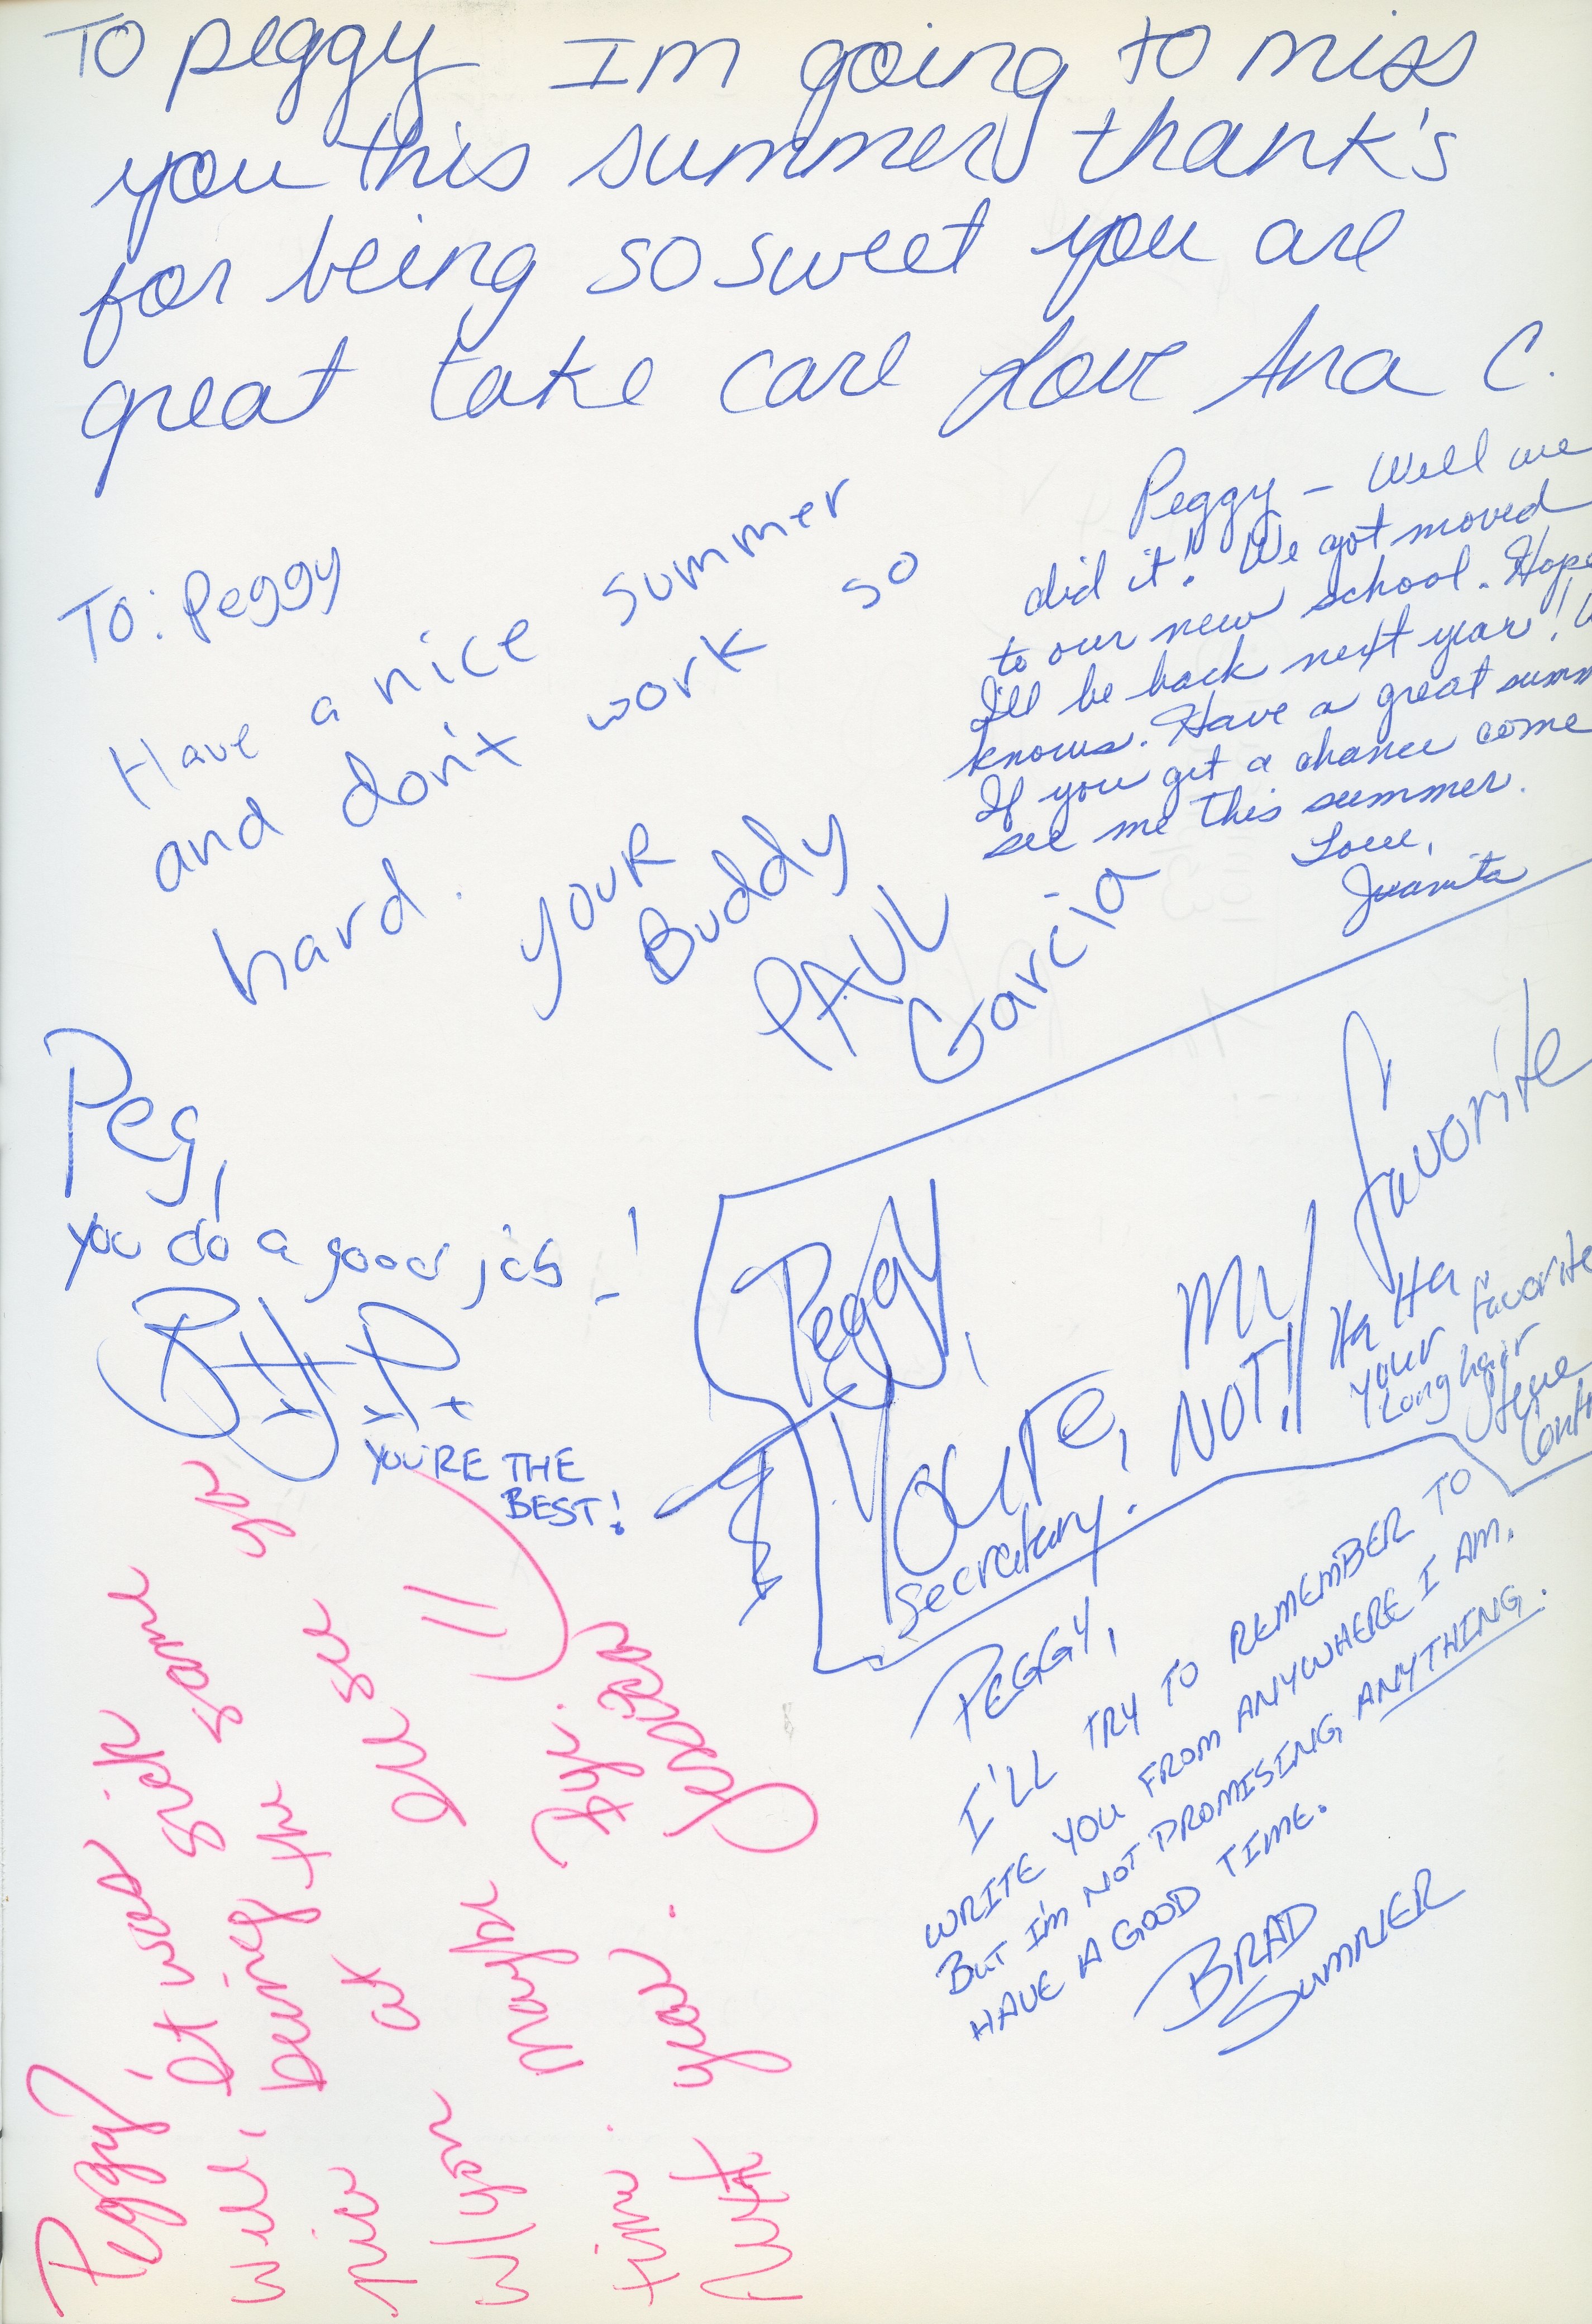 To peggy Im going to miss
you this summer thank's
for being so sweet you are
great take care Love Ana C.
Peggy – Well we
did it! We got moved
to our new school. Hope
I'll be back next year!
knows. Have a great summ
If you get a chance come
see me this summer.
Love,
Juanita
To: Peggy
Have a nice summer
and don't work so
hard.
your
Buddy
PAUL
Garcia
Peg,
you do a good job!
YOU'RE THE
BEST!
Peggy,
You're, my favorite
Secretary. NOT!
Ha Ha
your favorite
Long hair
Steve
PEGGY,
I'LL TRY TO REMEMBER TO
WRITE YOU FROM ANYWHERE I AM.
BUT I'M NOT PROMISING ANYTHING.
HAVE A GOOD TIME.
BRAD
SUMNER
Peggy,
Well, it was sick
being the same
at
I'll see ya
w/you maybe
time.
Next year. Jessica